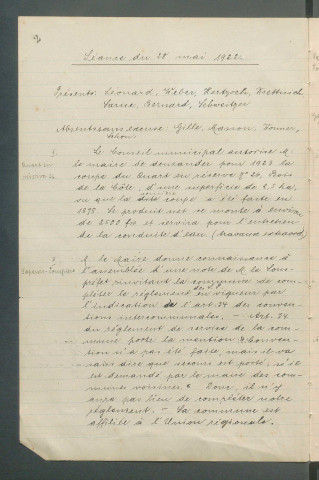 Séance du 28 mai 1922.
Présents: Léonard, Weber, Hertzoch,
Bernard, Schweitzer
Absents sans excuse: Gille, Masson,
1.
Le Conseil municipal autorise M
le maire de demander pour 1923 la
coupe du Quart en réserve No 20, Bois
de la Côte, d'une superficie de 2,5 ha,
vu que la dite coupe a été faite en
1898. Le produit net se monte à environ
de 2000 frs et servira pour l'entretien
de la conduite d'eau (travaux extraord.)
2.
Sapeurs-Pompiers
M. le Maire donne connaissance à
l'assemblée d'une note de M. le Sous-
préfet invitant la commune de com-
pléter le règlement en vigueur par
l'indication de l'art. 24 des conven-
tions intercommunales. - Art. 24
du règlement de service de la com-
mune porte la mention: "Conven-
tion n'a pas été faite, mais il va
sans dire que secours est porté, s'il
est demandé par le maire des com-
munes voisines." Donc il n'y
aura pas lieu de compléter notre
règlement. - La commune est
affiliée à l'Union régionale.